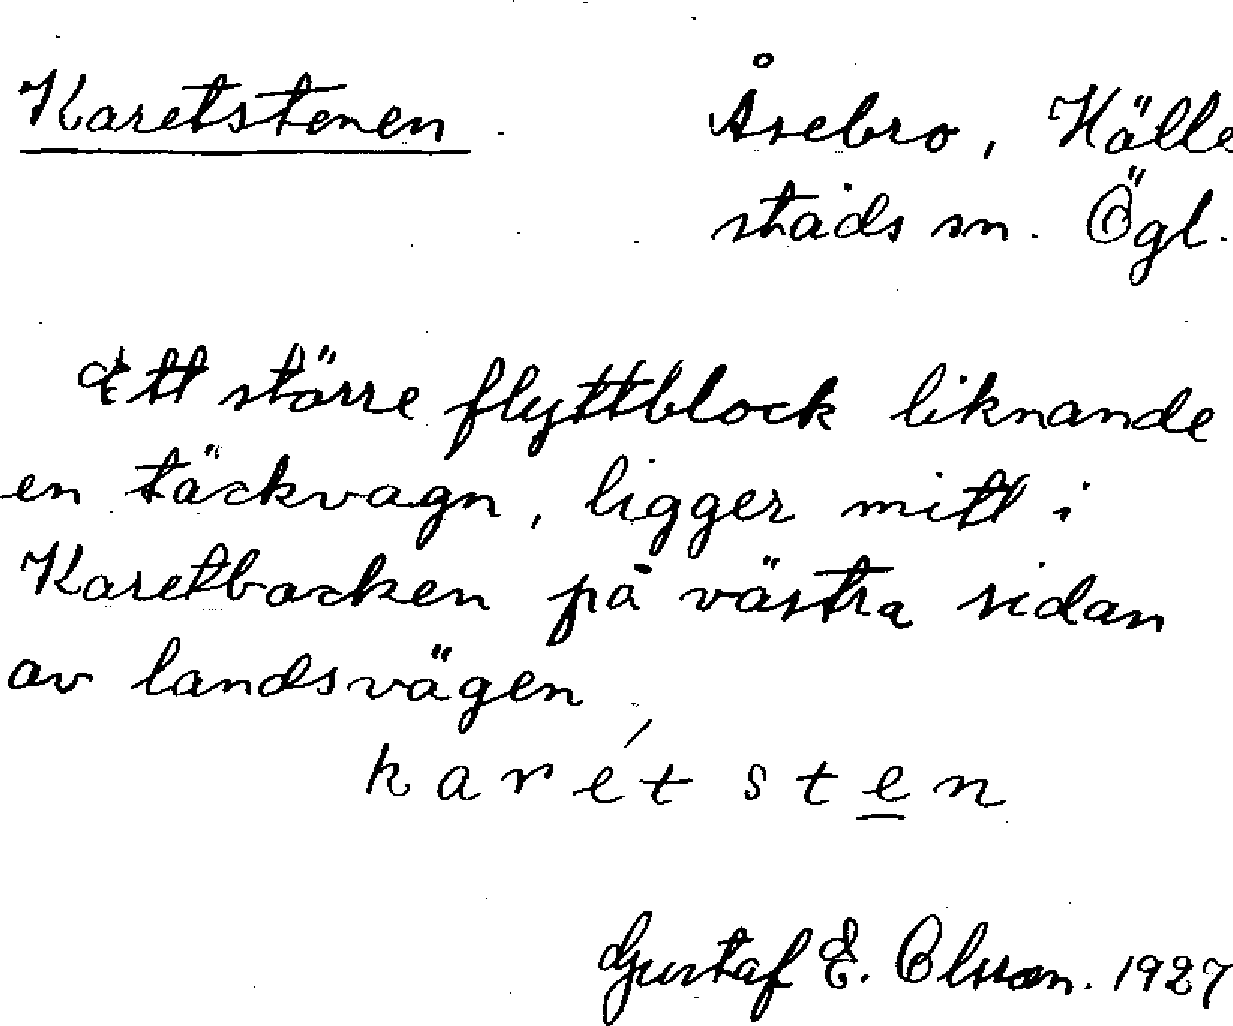 Karetstenen. Åsebro, Hälle
stads sn. Ögl.
Ett större flyttblock liknande
en täckvagn, ligger mitt i
Karetbacken på västra sidan
av landsvägen
karét sten
Gustaf E. Olsson. 1927